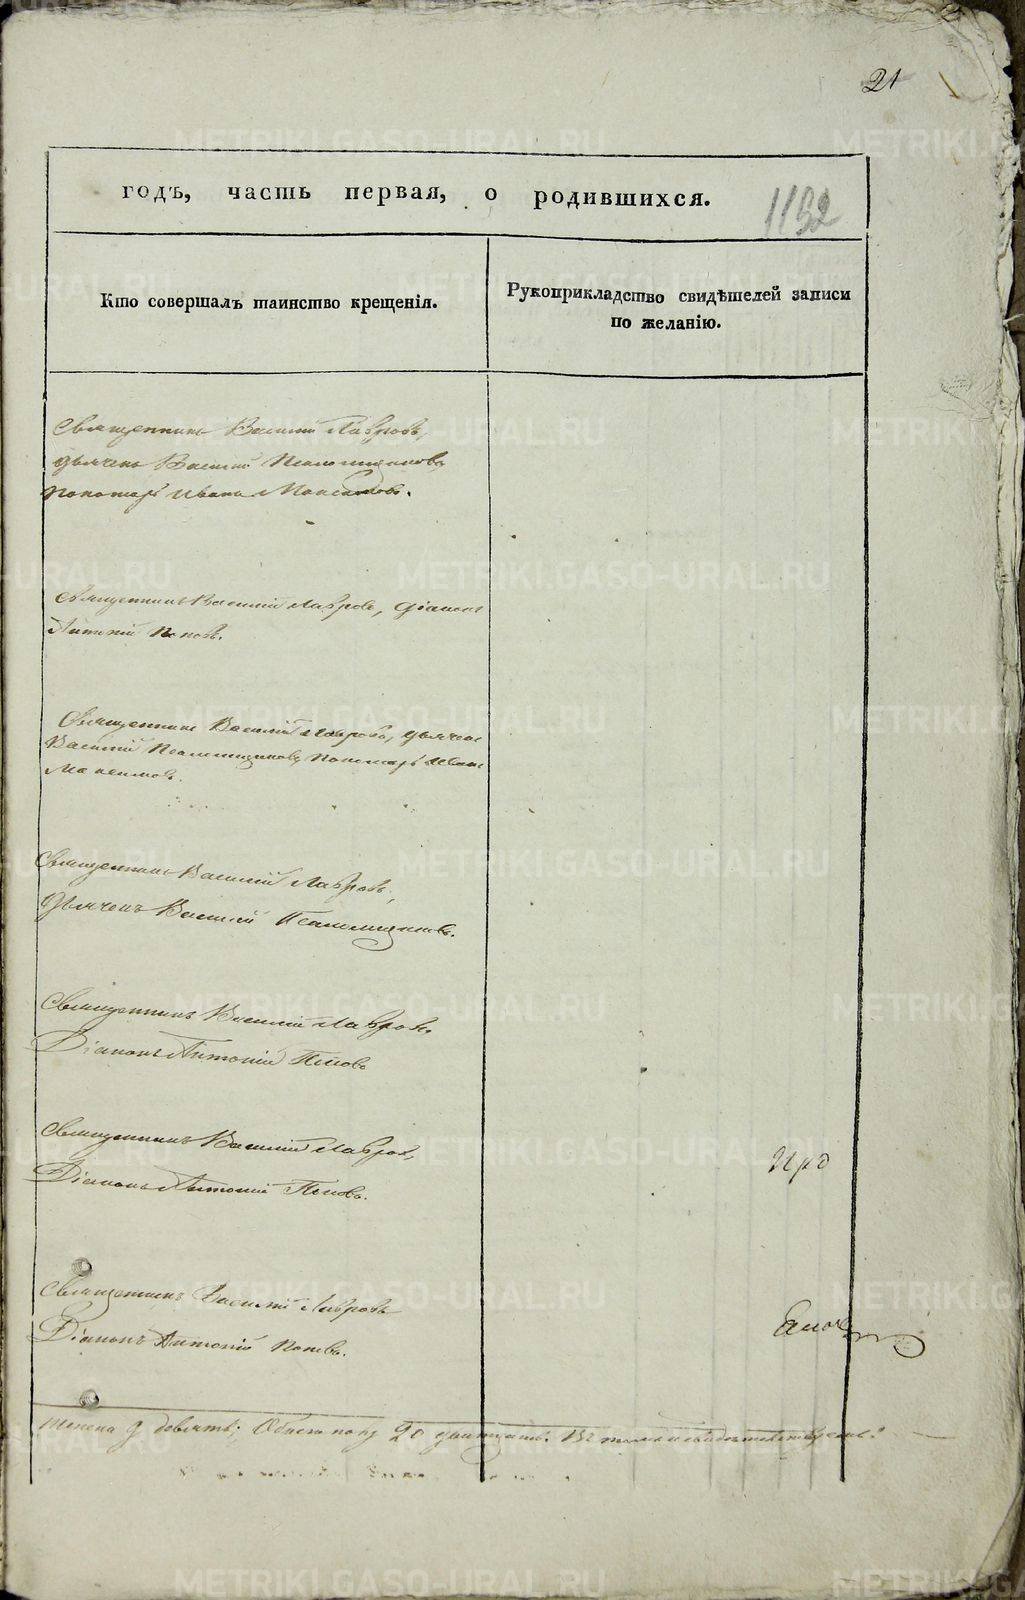 21
годъ, часть первая, о родившихся.
1192
Кто совершалъ таинство крещенія.
Рукоприкладство свидѣтелей записи
по желанію.
Священникъ Василій Лавровъ,
дьячекъ Василій Псаломщиковъ
пономарь Иванъ Максимовъ.
Священникъ Василій Лавровъ, діаконъ
Антоній Поповъ.
Священникъ Василій Лавровъ, дьячекъ
Василій Псаломщиковъ, пономарь Иванъ
Максимовъ.
Священникъ Василій Лавровъ,
Дьячекъ Василій Псаломщиковъ.
Священникъ Василій Лавровъ.
Діаконъ Антоній Поповъ
Священникъ Василій Лавровъ,
Діаконъ Антоній Поповъ.
Священникъ Василій Лавровъ
Діаконъ Антоній Поповъ.
женска 9 девять; Обоего полу 20 двадцать. Въ томъ и свидѣтельствуемъ:
METRIKI.GASO-URAL.RU